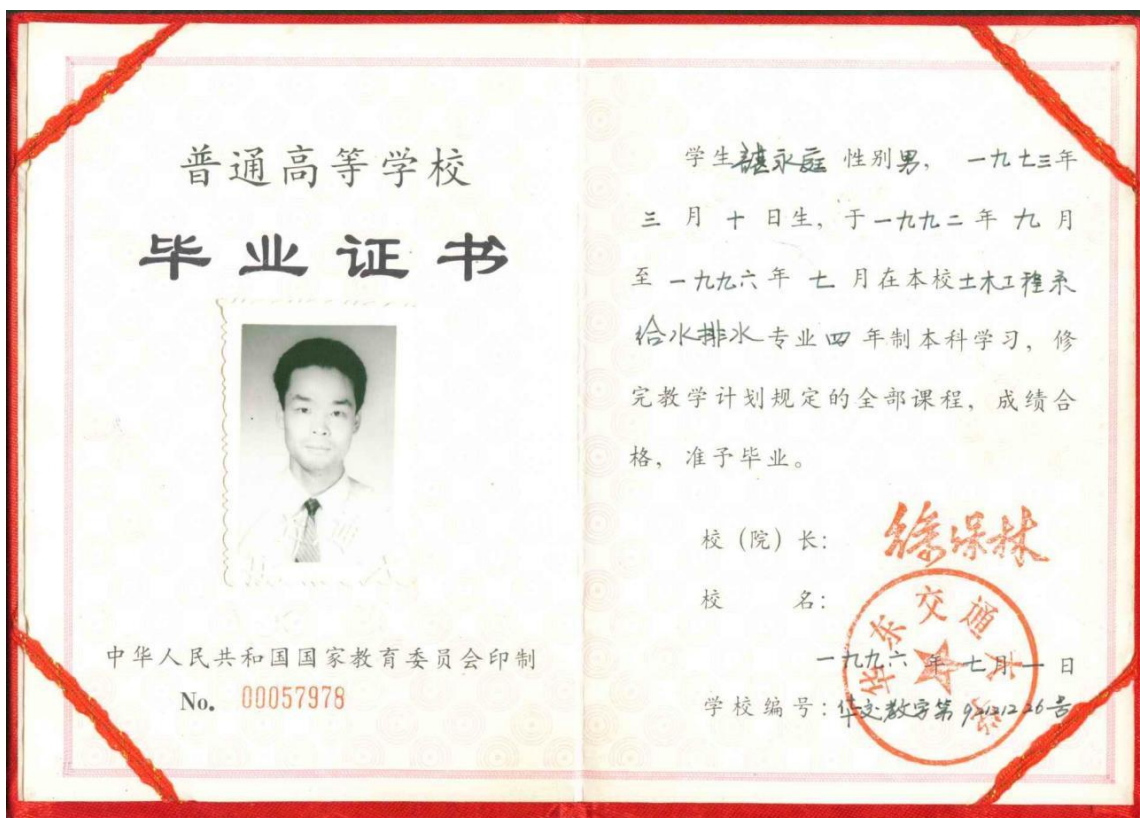 普通高等学校
毕业证书
中华人民共和国国家教育委员会印制
No. 00057978
学生谌永庭 性别男, 一九七三年
三月十日生, 于一九九二年九月
至一九九六年七月在本校土木工程系
给水排水专业四年制本科学习, 修
完教学计划规定的全部课程, 成绩合
格, 准予毕业。
校(院)长: 徐保林
校名:
华东交通大学
一九九六年七月一日
学校编号: 华交教字第